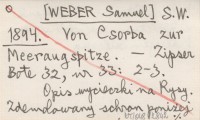 [WEBER Samuel] S.W.
1894. Von Csorba zur
Meeraugspitze. — Zipser
Bote 32, nr 33: 2-3.
Opis wycieczki na Rysy.
Zdemolowany schron poniżej